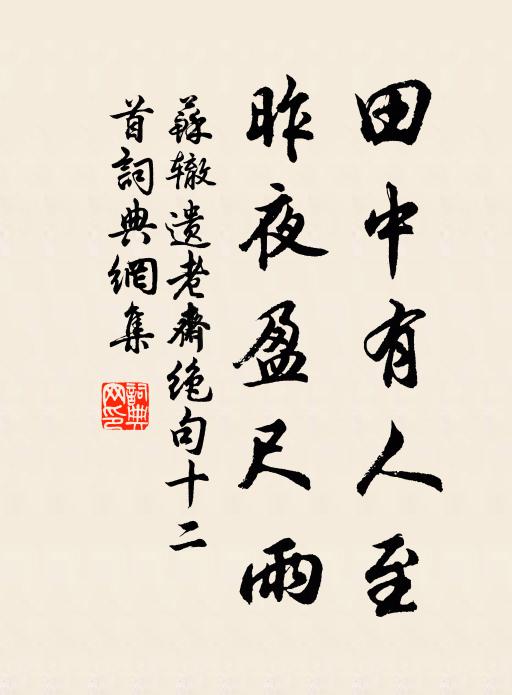 田中有人至
昨夜盈尺雨
蘇辙遗老齋绝句十二
首詞典網集
詞典网印